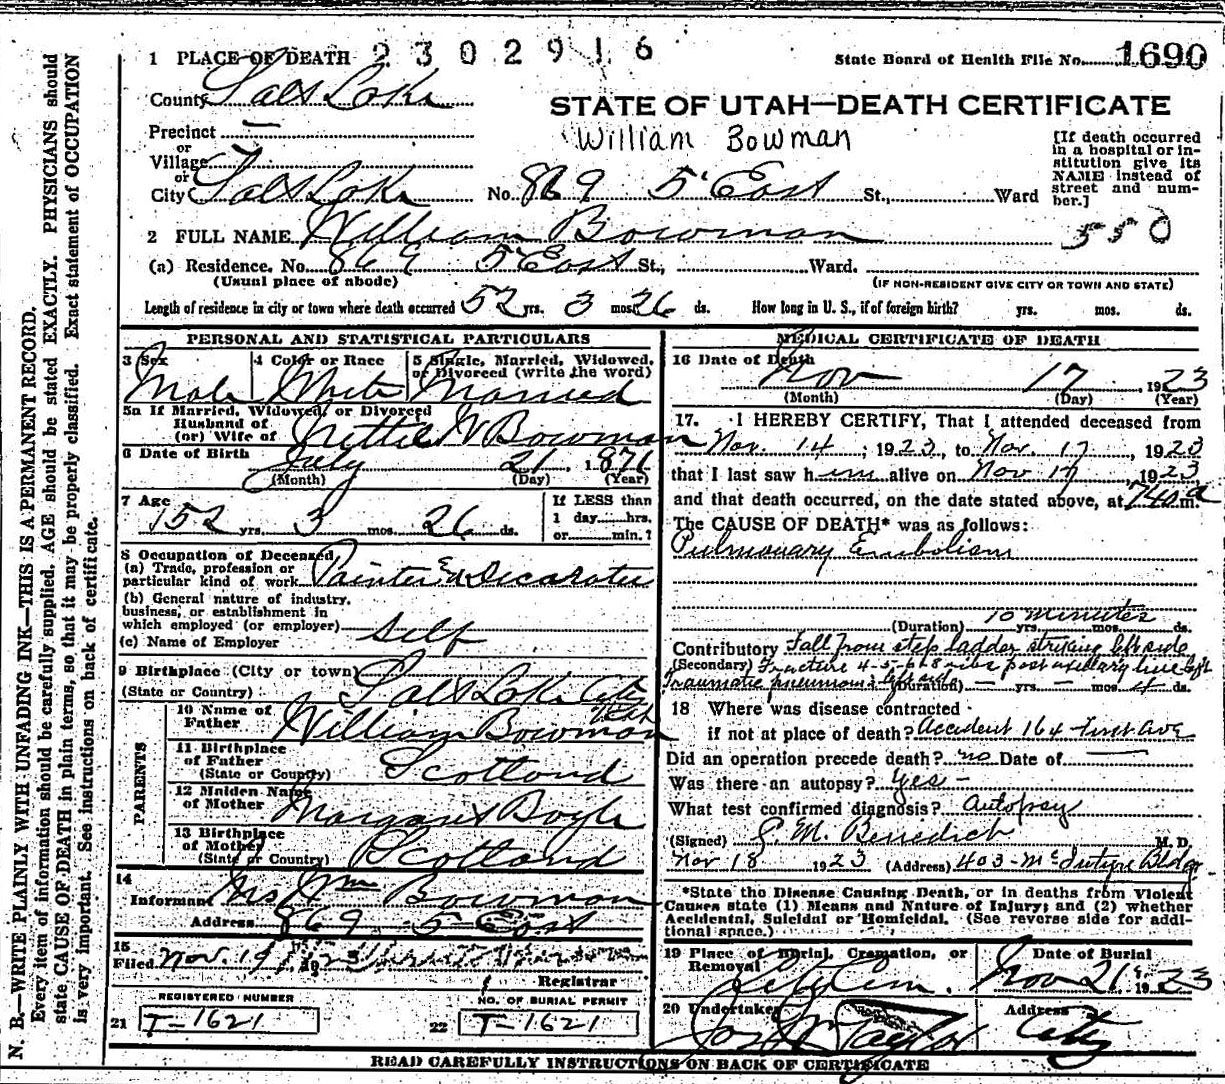 1 PLACE OF DEATH 2302916 State Board of Health File No. 1690
County Salt Lake
STATE OF UTAH—DEATH CERTIFICATE
William Bowman
Precinct
or
Village
or
City Salt Lake No. 869 5 East St., Ward
[If death occurred
in a hospital or in-
stitution give its
NAME instead of
street and num-
ber.]
2 FULL NAME William Bowman 550
(a) Residence. No. 869 5 East St., Ward.
(Usual place of abode) (IF NON-RESIDENT GIVE CITY OR TOWN AND STATE)
Length of residence in city or town where death occurred 52 yrs. 3 mos. 26 ds. How long in U. S., if of foreign birth? yrs. mos. ds.
PERSONAL AND STATISTICAL PARTICULARS
3 Sex 4 Color or Race 5 Single, Married, Widowed,
or Divorced (write the word)
Male White Married
5a If Married, Widowed, or Divorced
Husband of
(or) Wife of Nettie W Bowman
6 Date of Birth July 21, 1871
(Month) (Day) (Year)
7 Age 52 yrs. 3 mos. 26 ds.
If LESS than
1 day hrs.
or min.?
8 Occupation of Deceased
(a) Trade, profession or
particular kind of work Painter & Decorator
(b) General nature of industry,
business, or establishment in
which employed (or employer) Self
(c) Name of Employer
9 Birthplace (City or town) Salt Lake City
(State or Country) Utah
PARENTS
10 Name of
Father William Bowman
11 Birthplace
of Father
(State or County) Scotland
12 Maiden Name
of Mother Margaret Boyle
13 Birthplace
of Mother
(State or Country) Scotland
14
Informant Mrs Wm Bowman
Address 869 5 East
15
Filed Nov. 19
Registrar
REGISTERED NUMBER NO. OF BURIAL PERMIT
21 T-1621 22 T-1621
MEDICAL CERTIFICATE OF DEATH
16 Date of Death Nov 17, 1923
(Month) (Day) (Year)
17. I HEREBY CERTIFY, That I attended deceased from
Nov. 14, 1923, to Nov. 17, 1923
that I last saw him alive on Nov 17 1923
and that death occurred, on the date stated above, at 740 a m.
The CAUSE OF DEATH* was as follows:
Pulmonary Embolism
10 minutes
(Duration) yrs. mos. ds.
Contributory Fall from step ladder striking left side
(Secondary) Fracture 4-5-6 8 ribs post axillary line left
Traumatic pneumonia left (Duration) — yrs. — mos. 4 ds.
18 Where was disease contracted
if not at place of death? Accident 164 First Ave
Did an operation precede death? no Date of
Was there an autopsy? yes -
What test confirmed diagnosis? autopsy
(Signed) G. M. Benedict M. D.
Nov 18 1923 (Address) 403 - McIntyre Bldg
*State the Disease Causing Death, or in deaths from Violent
Causes state (1) Means and Nature of Injury; and (2) whether
Accidental, Suicidal or Homicidal. (See reverse side for addi-
tional space.)
19 Place of Burial, Cremation, or
Removal City Cem. Date of Burial
Nov 21 1923
20 Undertaker Jos Wm Taylor Address City
READ CAREFULLY INSTRUCTIONS ON BACK OF CERTIFICATE
N. B.—WRITE PLAINLY WITH UNFADING INK—THIS IS A PERMANENT RECORD.
Every item of information should be carefully supplied. AGE should be stated EXACTLY. PHYSICIANS should
state CAUSE OF DEATH in plain terms, so that it may be properly classified. Exact statement of OCCUPATION
is very important. See instructions on back of certificate.